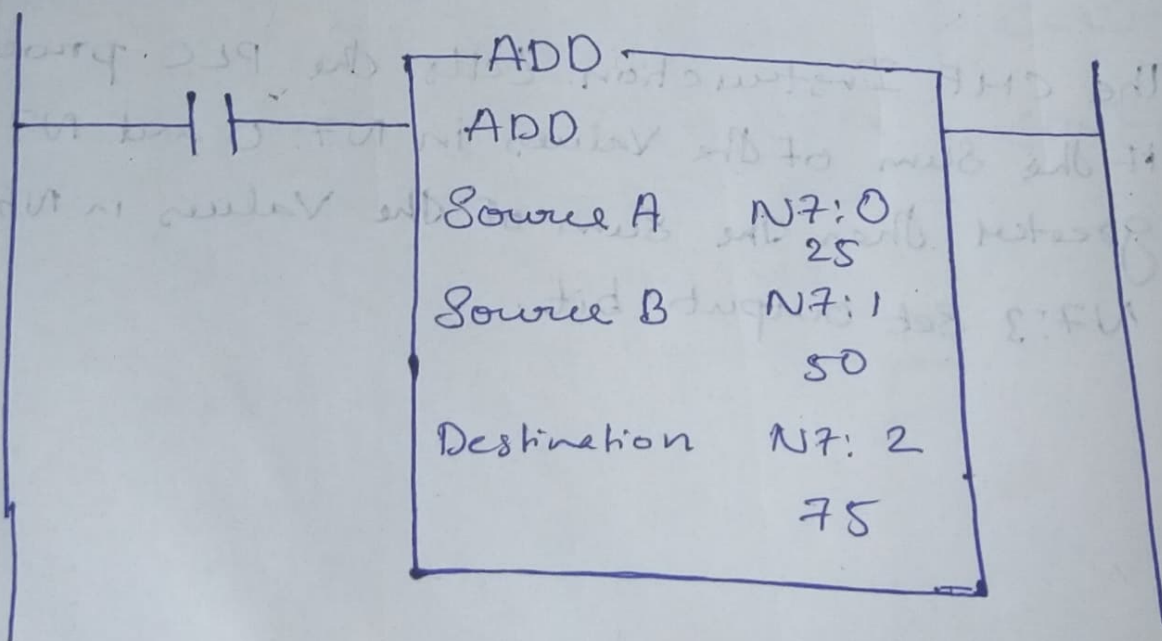 ADD
ADD
Source A N7:0
25
Source B N7:1
50
Destination N7: 2
75